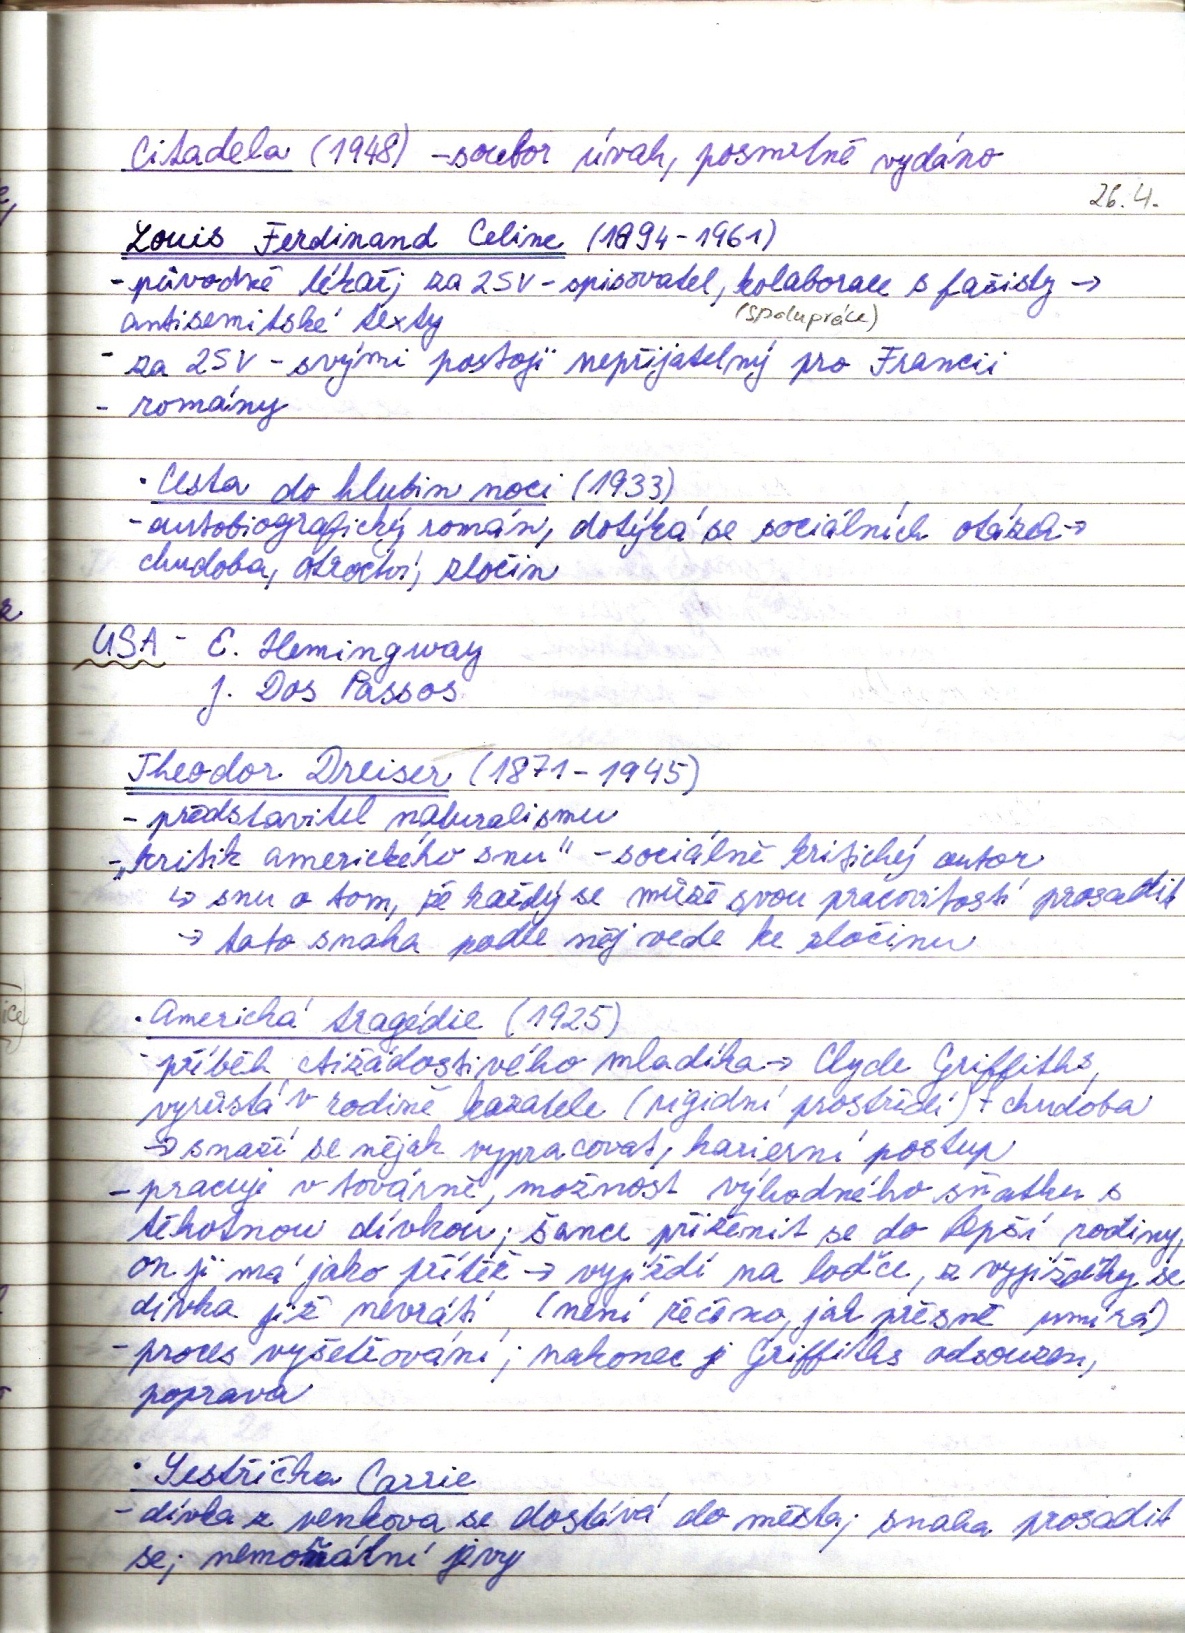 Citadela (1948) - soubor úvah, posmrtně vydáno
26.4.
Louis Ferdinand Celine (1894-1961)
- původně lékař; za 2SV - spisovatel, kolaborace s fašisty →
(spolupráce)
antisemitské texty
- za 2SV - svými postoji nepřijatelný pro Francii
- romány
· Cesta do hlubin noci (1933)
- autobiografický román, dotýká se sociálních otázek →
chudoba, otroctví, zločin
USA - E. Hemingway
J. Dos Passos
Theodor Dreiser (1871-1945)
- představitel naturalismu
- „kritik amerického snu" - sociálně kritický autor
↳ snu o tom, že každý se může svou pracovitostí prosadit
→ tato snaha podle něj vede ke zločinu
· Americká tragédie (1925)
- příběh ctižádostivého mladíka → Clyde Griffiths,
vyrůstá v rodině kazatele (rigidní prostředí) + chudoba
→ snaží se nějak vypracovat, kariérní postup
- pracuje v továrně, možnost výhodného sňatku s
těhotnou dívkou; šance přiženit se do lepší rodiny,
on ji má jako přítěž → vyjíždí na loďce, z vyjížďky se
dívka již nevrátí (není řečeno, jak přesně umírá)
- proces vyšetřování; nakonec je Griffiths odsouzen,
poprava
· Sestřička Carrie
- dívka z venkova se dostává do města; snaha prosadit
se; nemorální jevy